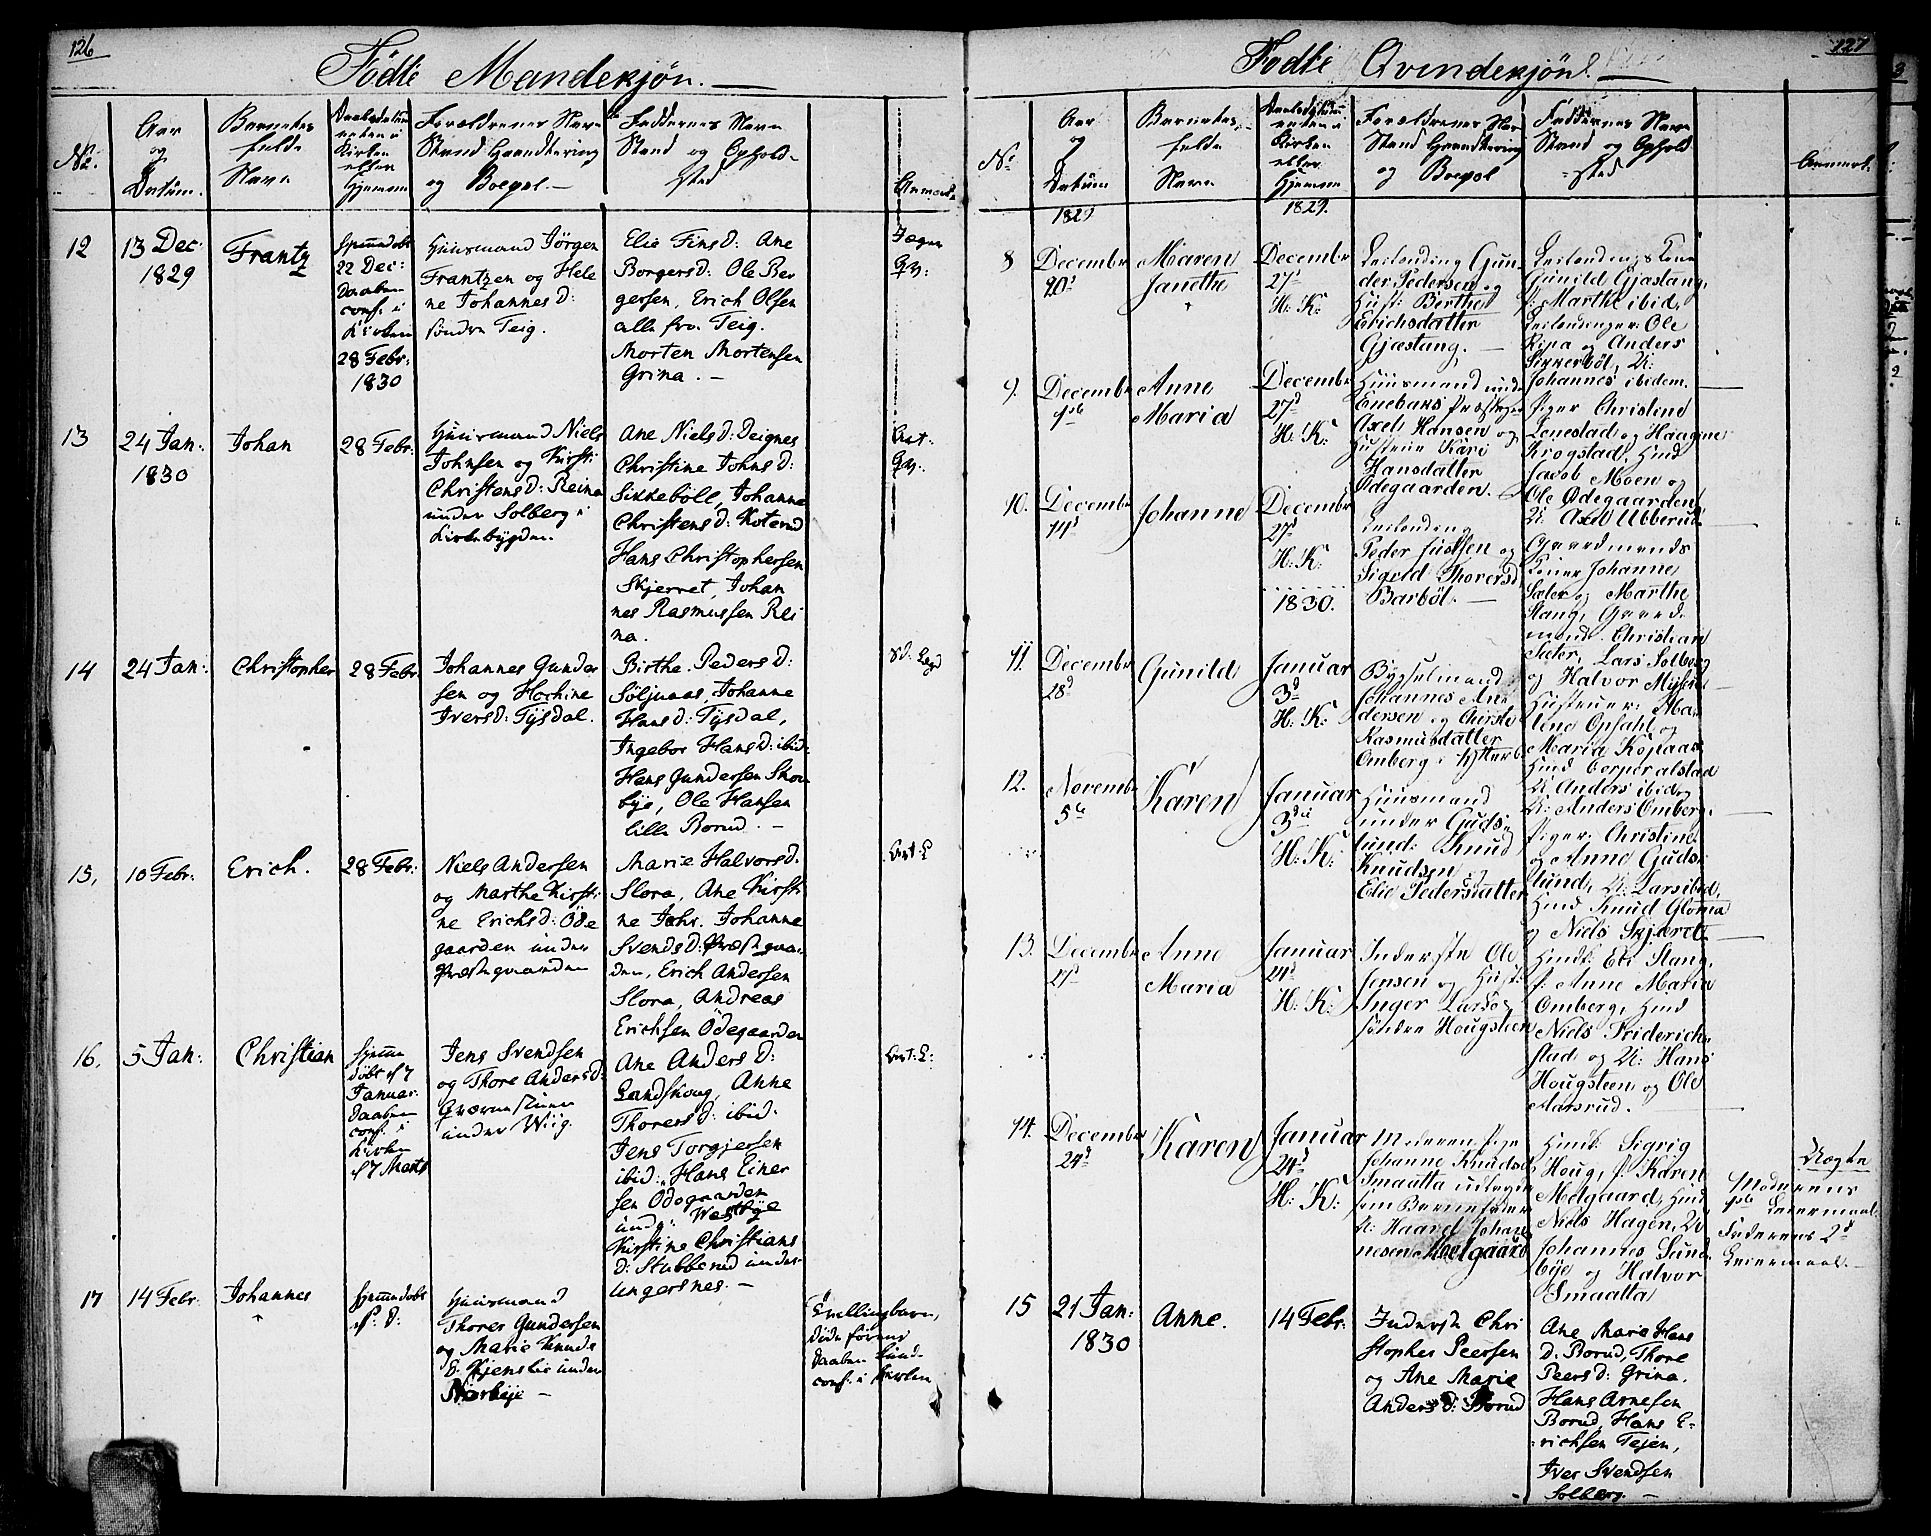 126
Födte Mandekjön.
No.
Aar
og
Datum.
Barnets
fulde
Navn
Daabsdatum
enten i
Kirken
eller
Hjemme
Forældrenes Navn
Stand Haandtering
og Bopæl.
Faddernes Navn
Stand og Ophold-
sted
Anmærk.
12
13 Dec:
1829
Frantz
Hjemmedöbt
22 Dec:
Daaben
conf. i
Kirken
28 Febr:
1830
Huusmand Jörgen
Frantzen og Hele
ne Johannesd:
söndre Teig.
Elie Finsd: Ane
Borgersd: Ole Ber
gersen, Erich Olsen
alle fra Teig.
Morten Mortensen
Grina.
13
24 Jan:
1830
Johan
28 Febr:
Huusmand Niels
Johnsen og Kirsti
Christensd: Reina
under Solberg i
Kirkebygden.
Ane Nielsd: Deignes
Christine Johnsd:
Sikkeböll, Johanne
Christensd: Koterud
Hans Christophersen
Skjerret, Johan
nes Rasmussen Rei
na.
14
24 Jan:
Christopher
28 Febr
Johannes Gunder
sen og Hochine
Iversd: Tysdal.
Birthe Pedersd:
Söljunas, Johanne
Hansd: Tysdal,
Ingebor Hansd: ibid:
Hans Gundersen Skou
bye, Ole Hansen
lille Borud.
15,
10 Febr:
Erich.
28 Febr:
Niels Andersen
og Marthe Kirsti
ne Erichsd: Öde
gaarden under
Præstegaarden
Marie Halvorsd.
Slora, Ane Kirsti
ne Jahr. Johanne
Svendsd: Præstegaar
den, Erich Andersen
Slora, Andreas
Erichsen Ödegaarden
16,
5 Jan:
Christian
Hjemme
döbt d 7
Januar.
Daaben
conf. i
Kirken
d 7 Marts
Jens Svendsen
og Thore Andersd:
Grævnestuen
under Wiig.
Ane Andersd:
Landskoug, Anne
Thorersd: ibid:
Jens Torgjersen
ibid: Hans Einer
sen Ödegaarden
und: Westbye
Kirstine Christians
d: Stubberud under
Ungersnes.
17
14 Febr.
Johannes
Hjemmedöbt
s: d:
Huusmand
Thorer Gundersen
og Marie Knuds
d: Kjenslie under
Norbye
Tvillingbarn,
döde förend
Daaben kunde
conf. i Kirken
127
Födte Qvindekjön.
No.
Aar
og
Datum
1829
Barnets
fulde
Navn
Daabsdatum
enten i
Kirken
eller
Hjemme
1829.
Forældrenes Navn
Stand Haandtering
og Bopæl
Faddernes Navn
Stand og Ophold
sted
Anmærk.
8
December
20d
Maren
Janethe
December
27d
H: K:
Leilending Gun-
der Pedersen og
Hust: Berthe
Erichsdatter
Gjæstang.
Leilendings Kone
Gunild Gjæstang,
p: Marthe ibid,
Leilendinger: Ole
Ripa og Anders
Sikkerböl, U:
Johannes ibidem.
9.
December
Anne
Maria
December
27d
H: K:
Huusmand under
Enebaks Præstegrd
Axel Hansen og
Hustrue Kari
Hansdatter
Ödegaarden.
Piger Christine
Lenestad og Haagine
Krogstad, Huusmd
Jacob Moen og
Ole Ödegaarden,
U: Axel Ubberud.
10.
December
14d
Johanne
December
27d
H: K:
Leilending
Peder Justsen og
Sigrid Thoresd
Barböl.
Gaardmands
Koner Johanne
Sæter og Marthe
Stang, Gaard-
mænd: Christian
Sæter, Lars Solberg
og Halvor Mysen
1830.
11.
December
28d
Gunild
Januar
3d
H: K:
Bygselmand
Johannes An-
dersen og Kirstie
Rasmusdatter
Omberg
Hustruer: Ma-
Opsahl og
Maria
U: Anders ibid og
U: Anders Omberg.
12.
November
5te
Karen
Januar
3die
H: K:
Huusmand
under Guds-
lund: Knud
Knudsen og
Elie Pedersdatter
Piger: Christine
og Anne Guds-
lund, U: Lars ibid,
Knud Gloma
og Niels Skjæret.
13.
December
Anne
Maria
Januar
24d
H: K:
Inderste Ole
Jensen og Hust:
Inger Larsd:
söndre Hougsteen
Stang,
p: Anne Maria
Omberg,
Niels Friderich-
stad og U: Hans
Hougsteen og Ole
Aarsrud.
14.
December
24d
Karen
Januar
24d
H: K:
Moderen Pige
Johanne Knudsd
Smaatta udlagde
som Barnefader
U: Haard Johan-
nesen Melgaard
Sigrig
Houg, p: Karen
Melgaard,
Niels Hagen, U:
Johannes Sund-
bye og Halvor
Smaatta
Uægte
Moderens
1ste Leiermaal.
Faderens 2d
Leiermaal.
15
21 Jan:
1830
Anne.
14 Febr:
Inderste Chri
stopher Peersen
og Ane Marie
Andersd: Borud
Ane Marie Hans
d: Borud, Thore
Peersd: Grina,
Hans Arnesen
Borud, Hans E-
richsen Tejen,
Iver Svendsen
Solberg.